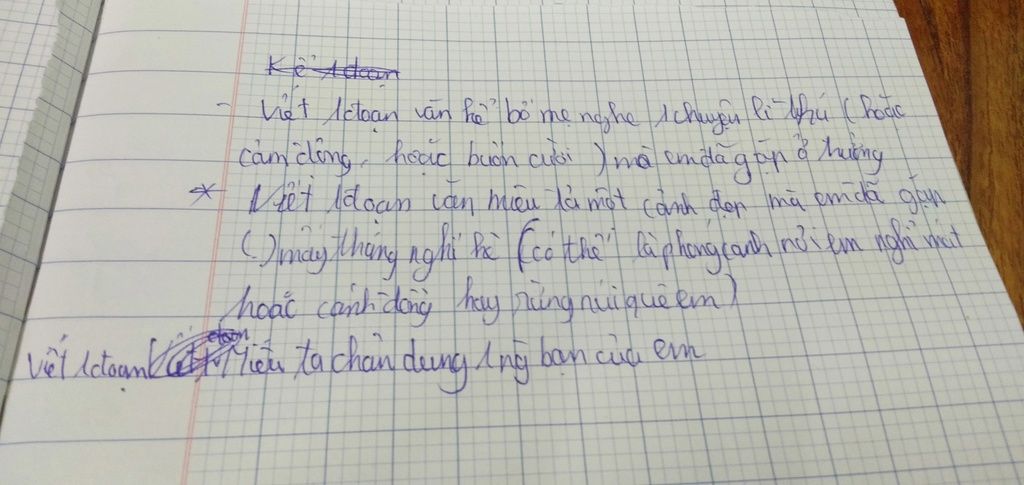 Kể 1 đoạn
- Viết 1 đoạn văn kể bố mẹ nghe 1 chuyện lí thú (hoặc
cảm động, hoặc buồn cười) mà em đã gặp ở trường
* Viết 1 đoạn văn miêu tả một cảnh đẹp mà em đã gặp
( ) mấy tháng nghỉ hè (có thể là phong cảnh nơi em nghỉ mát
hoặc cánh đồng hay rừng núi quê em)
Viết 1 đoạn miêu tả chân dung 1 ng bạn của em